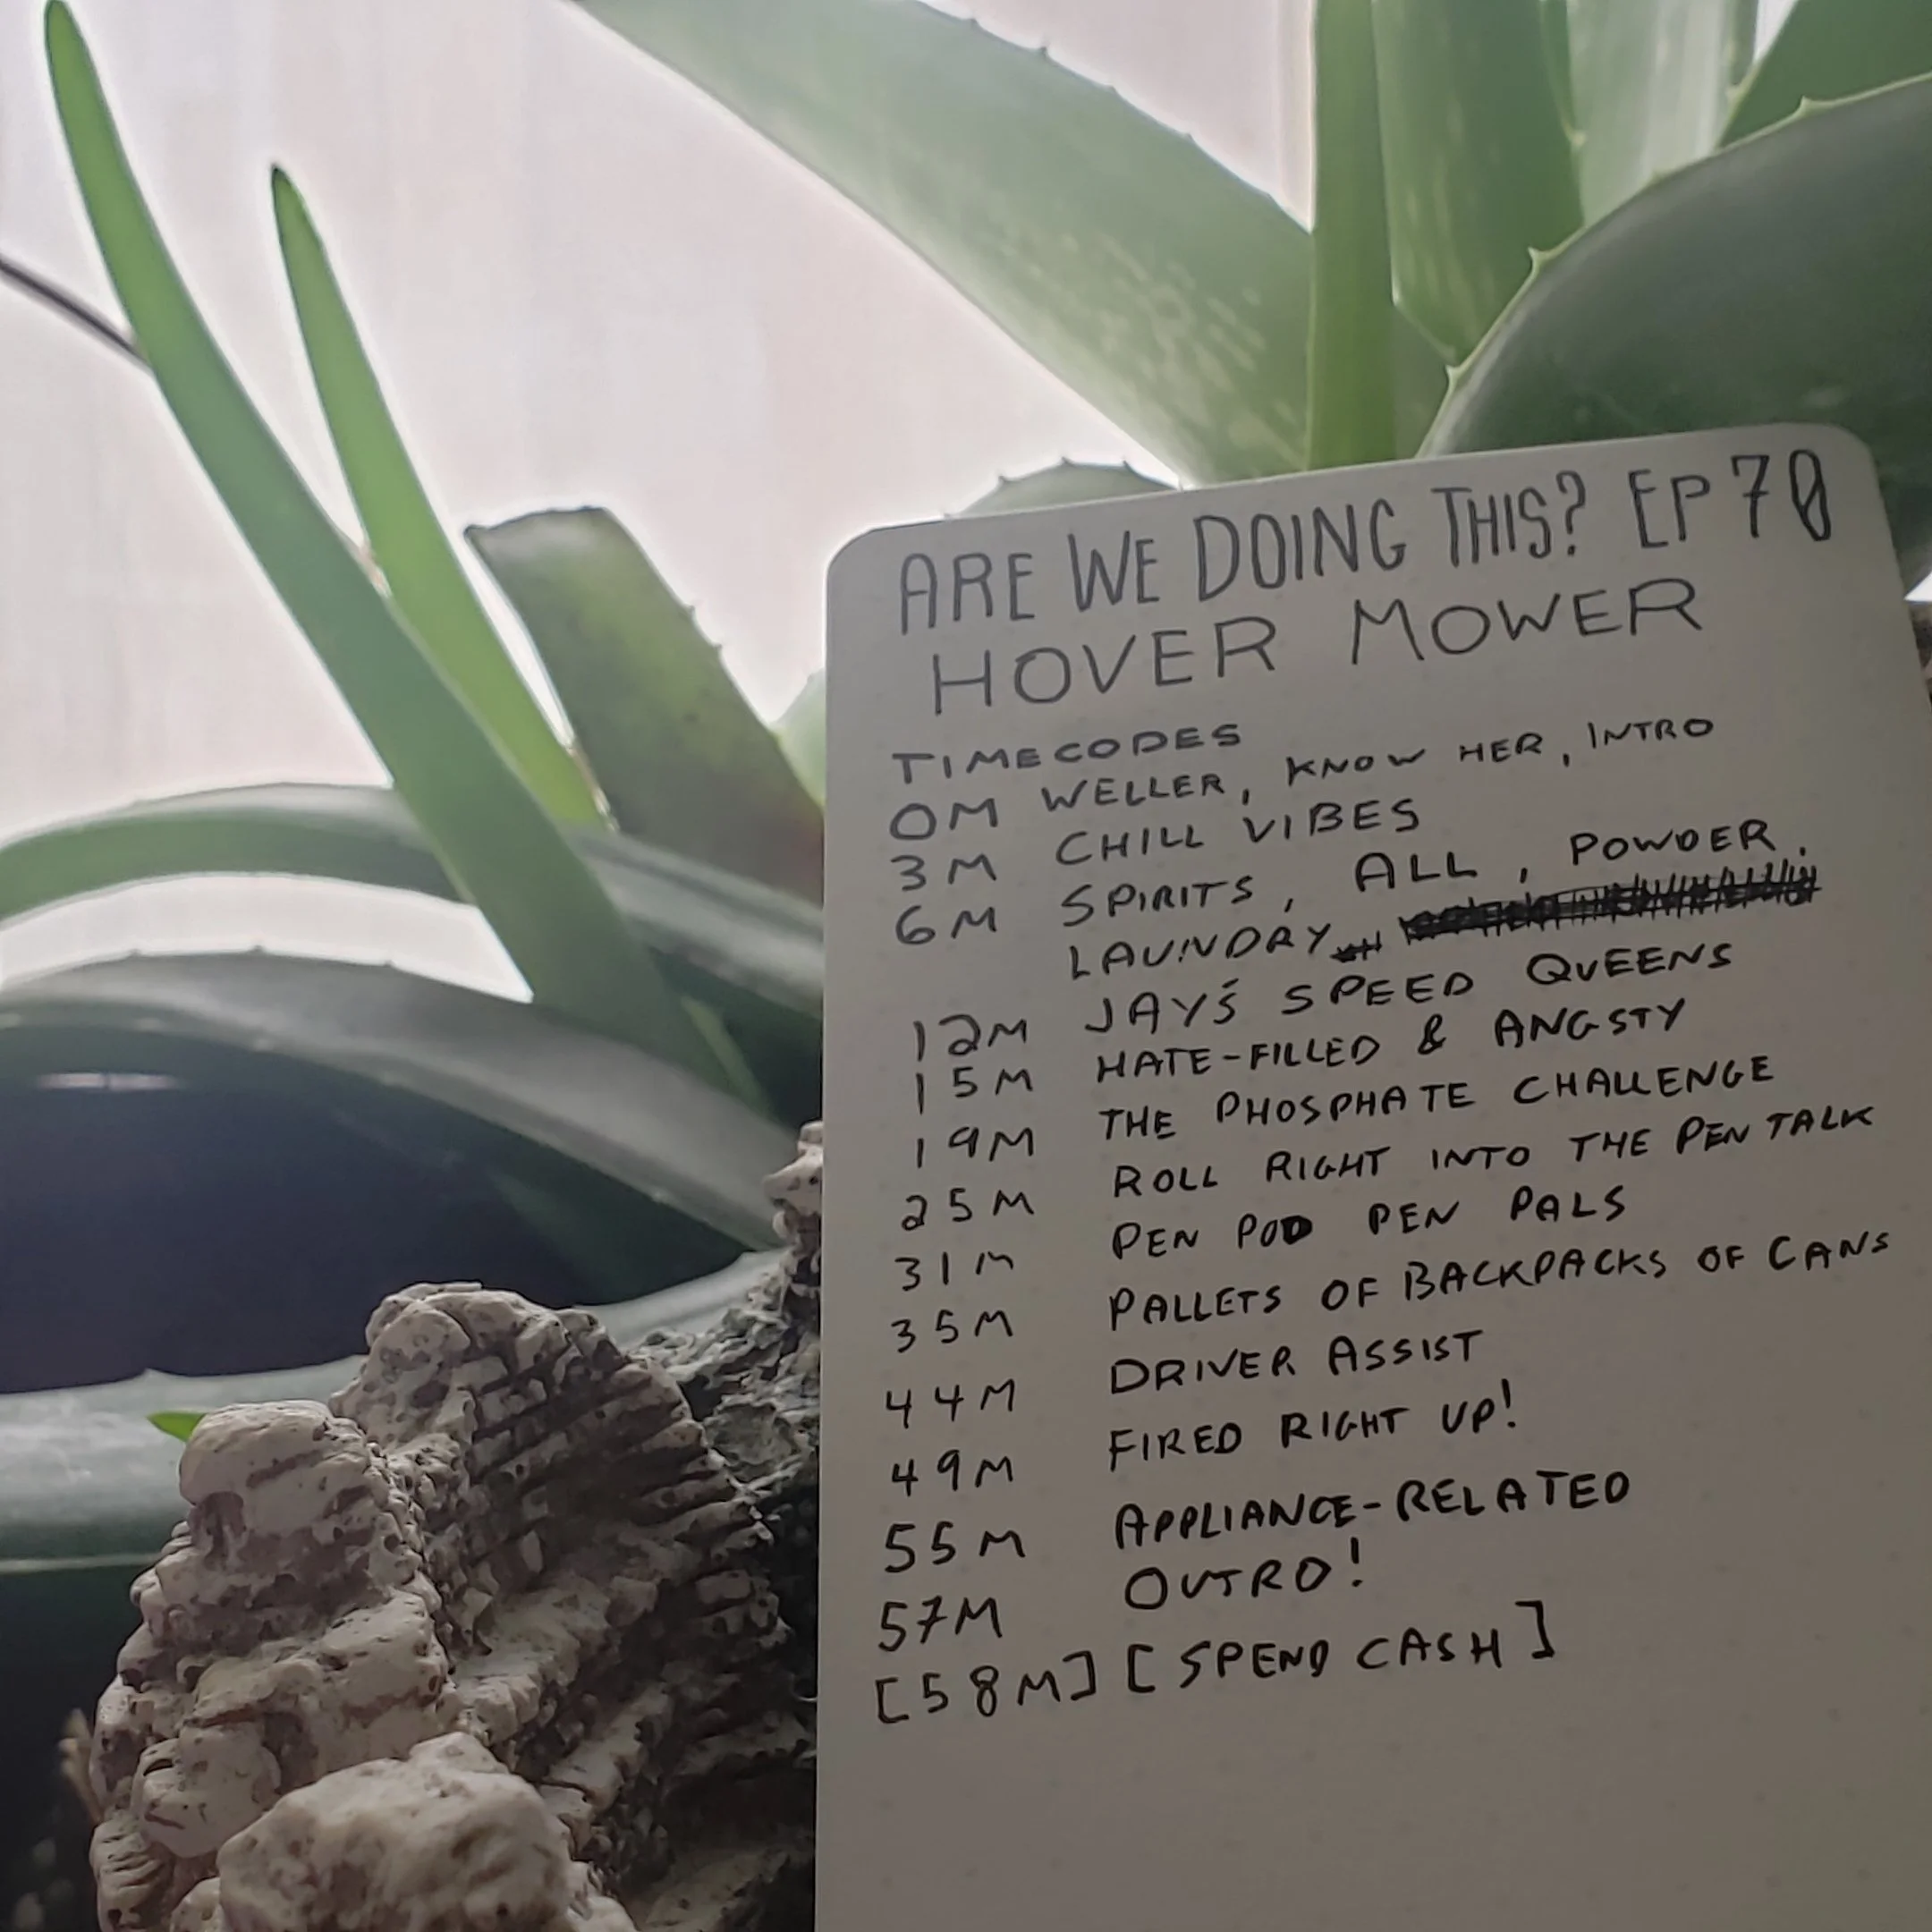 ARE WE DOING THIS? EP 70
HOVER MOWER
TIMECODES
0M WELLER, KNOW HER, INTRO
3M CHILL VIBES
6M SPIRITS, ALL, POWDER,
LAUNDRY
12M JAY'S SPEED QUEENS
15M HATE-FILLED & ANGSTY
19M THE PHOSPHATE CHALLENGE
25M ROLL RIGHT INTO THE PEN TALK
31M PEN POD PEN PALS
35M PALLETS OF BACKPACKS OF CANS
44M DRIVER ASSIST
49M FIRED RIGHT UP!
55M APPLIANCE-RELATED
57M OUTRO!
[58M] [SPEND CASH]